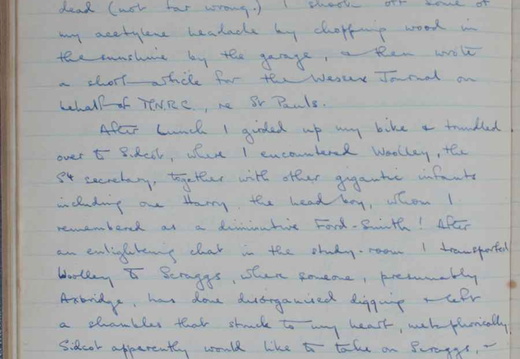 dead (not far wrong.) I shook off some of
my acetylene headache by chopping wood in
the sunshine by the garage, & then wrote
a short article for the Wessex Journal on
behalf of MNRC, re St Pauls.
After lunch I girded up my bike & trundled
over to Sidcot, where I encountered Woolley, the
secretary, together with other gigantic infants
including one Harry, the head boy, whom I
remembered as a diminutive Ford-Smith! After
an enlightening chat in the study-room I transported
Woolley to Scraggs, where someone, presumably
Axbridge, has done disorganised digging & left
a shambles that struck to my heart, metaphorically.
Sidcot apparently would like to take on Scraggs, -